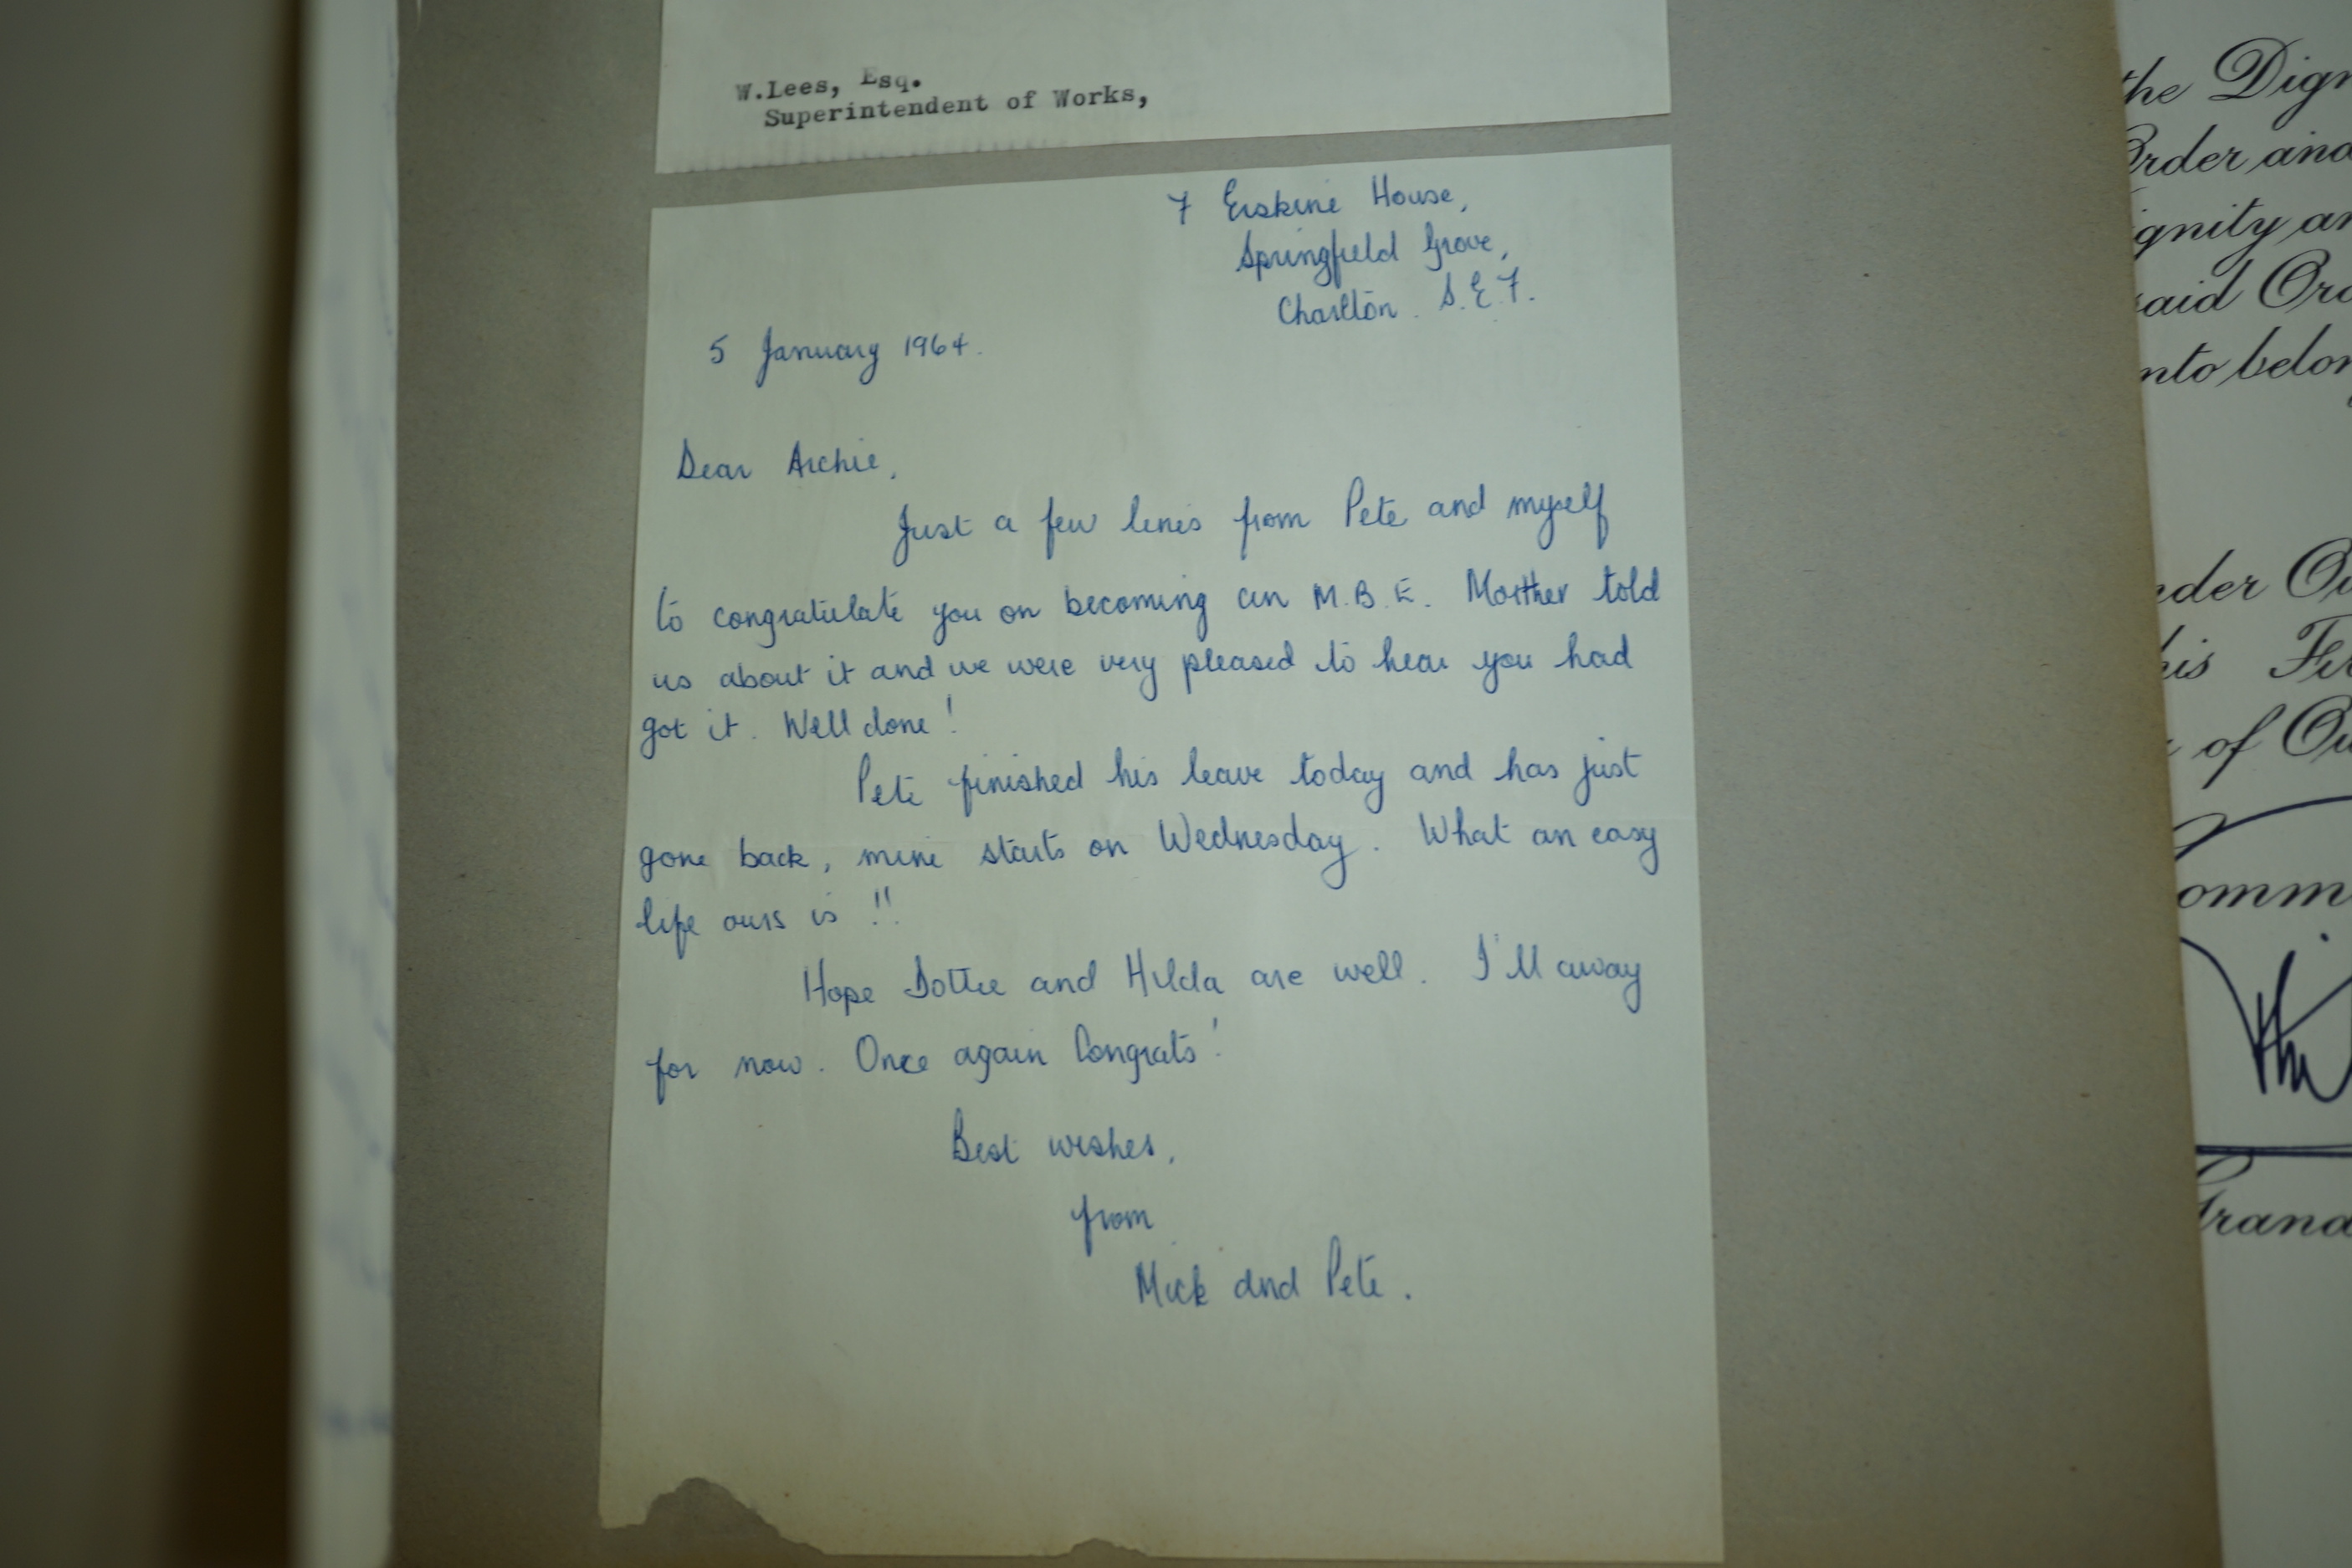 W.Lees, Esq.
Superintendent of Works,
7 Erskine House,
Springfield Grove,
Charlton. S.E.7.
5 January 1964.
Dear Archie,
Just a few lines from Pete and myself
to congratulate you on becoming an M.B.E. Mother told
us about it and we were very pleased to hear you had
got it. Well done!
Pete finished his leave today and has just
gone back, mine starts on Wednesday. What an easy
life ours is!!
Hope Dottie and Hilda are well. I'll away
for now. Once again Congrats!
Best wishes,
from
Mick and Pete.
the Dign
Order and
ignity an
said Ord
nto belon
nder Ou
his Fir
of Ou
omm
Grand